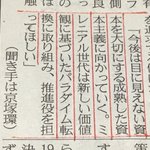 「今後は目に見えない資
本を大切にする成熟した資
本主義に向かっていく。ミ
レニアル世代は新しい価値
観に基づいたパラダイム転
換に取り組み、推進役を担
ってほしい」
（聞き手は京塚環）